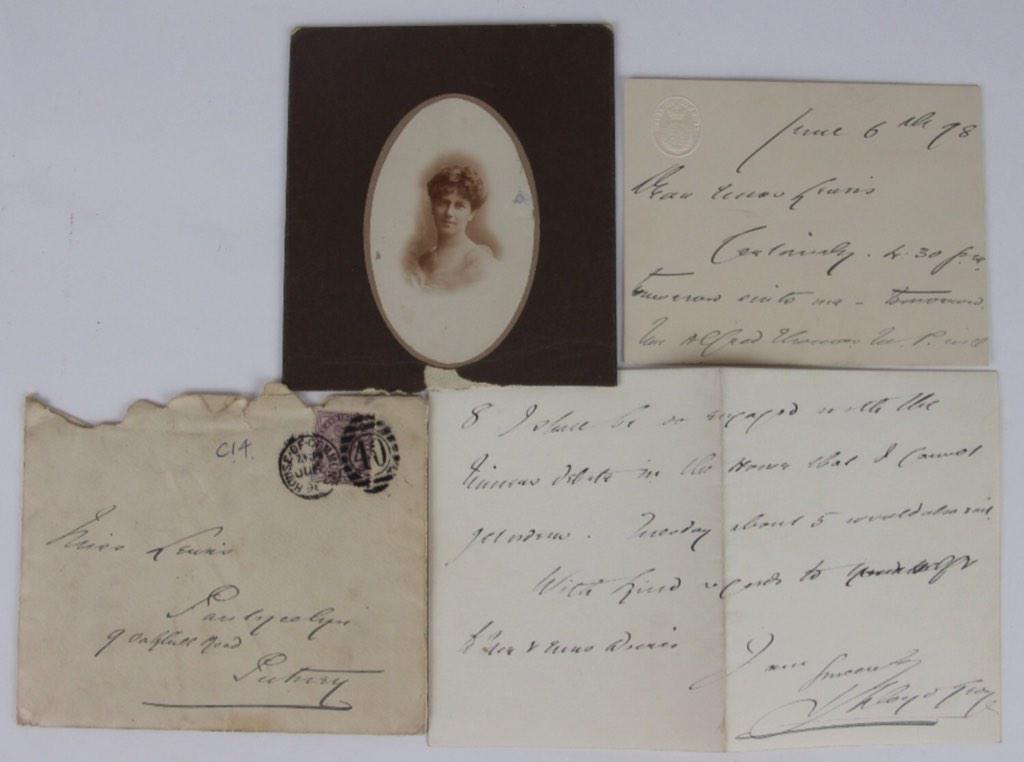 June 6th 98
Dear Miss Lewis
Certainly. 4.30 p.m.
tomorrow suits me - tomorrow
Mr Alfred Thomas M.P. will
C14.
HOUSE-OF-COMMONS
JU
40
Miss Lewis
9 Oakhill Road
Putney
8 I shall be so engaged with the
Finance debate in the House that I cannot
. Tuesday about 5 would also suit.
With kind regards to
& Miss Davies
I am Sincerely